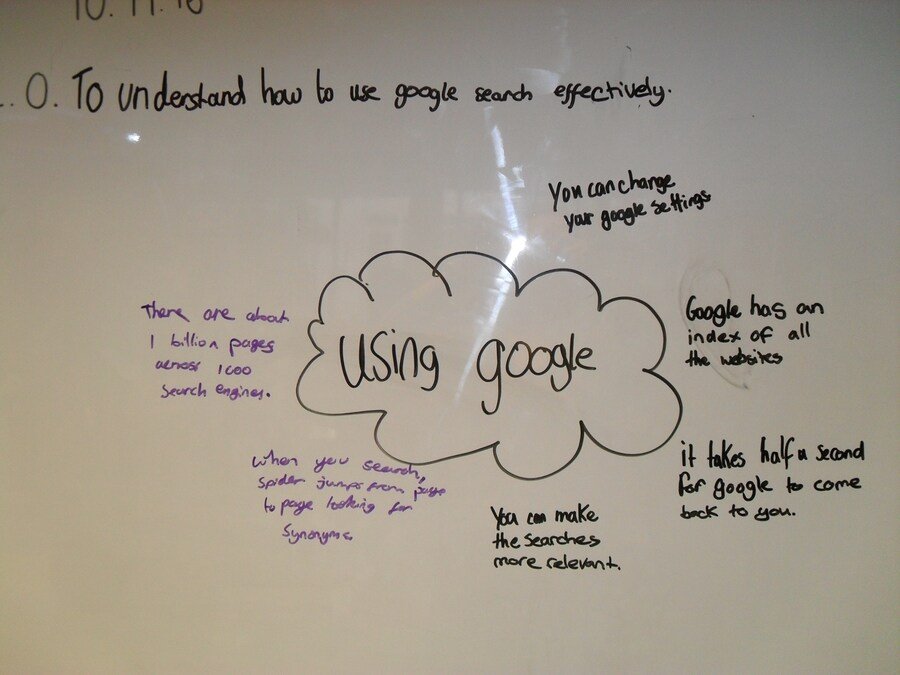 O. To understand how to use google search effectively.
You can change
your google settings
Google has an
index of all
the websites
it takes half a second
for google to come
back to you.
You can make
the searches
more relevant.
When you search,
spider jumps from page
to page looking for
synonyms
There are about
1 billion pages
across 1000
search engines.
using google